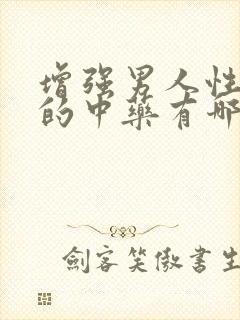 增强男人性
的中药有哪
剑客笑傲書生